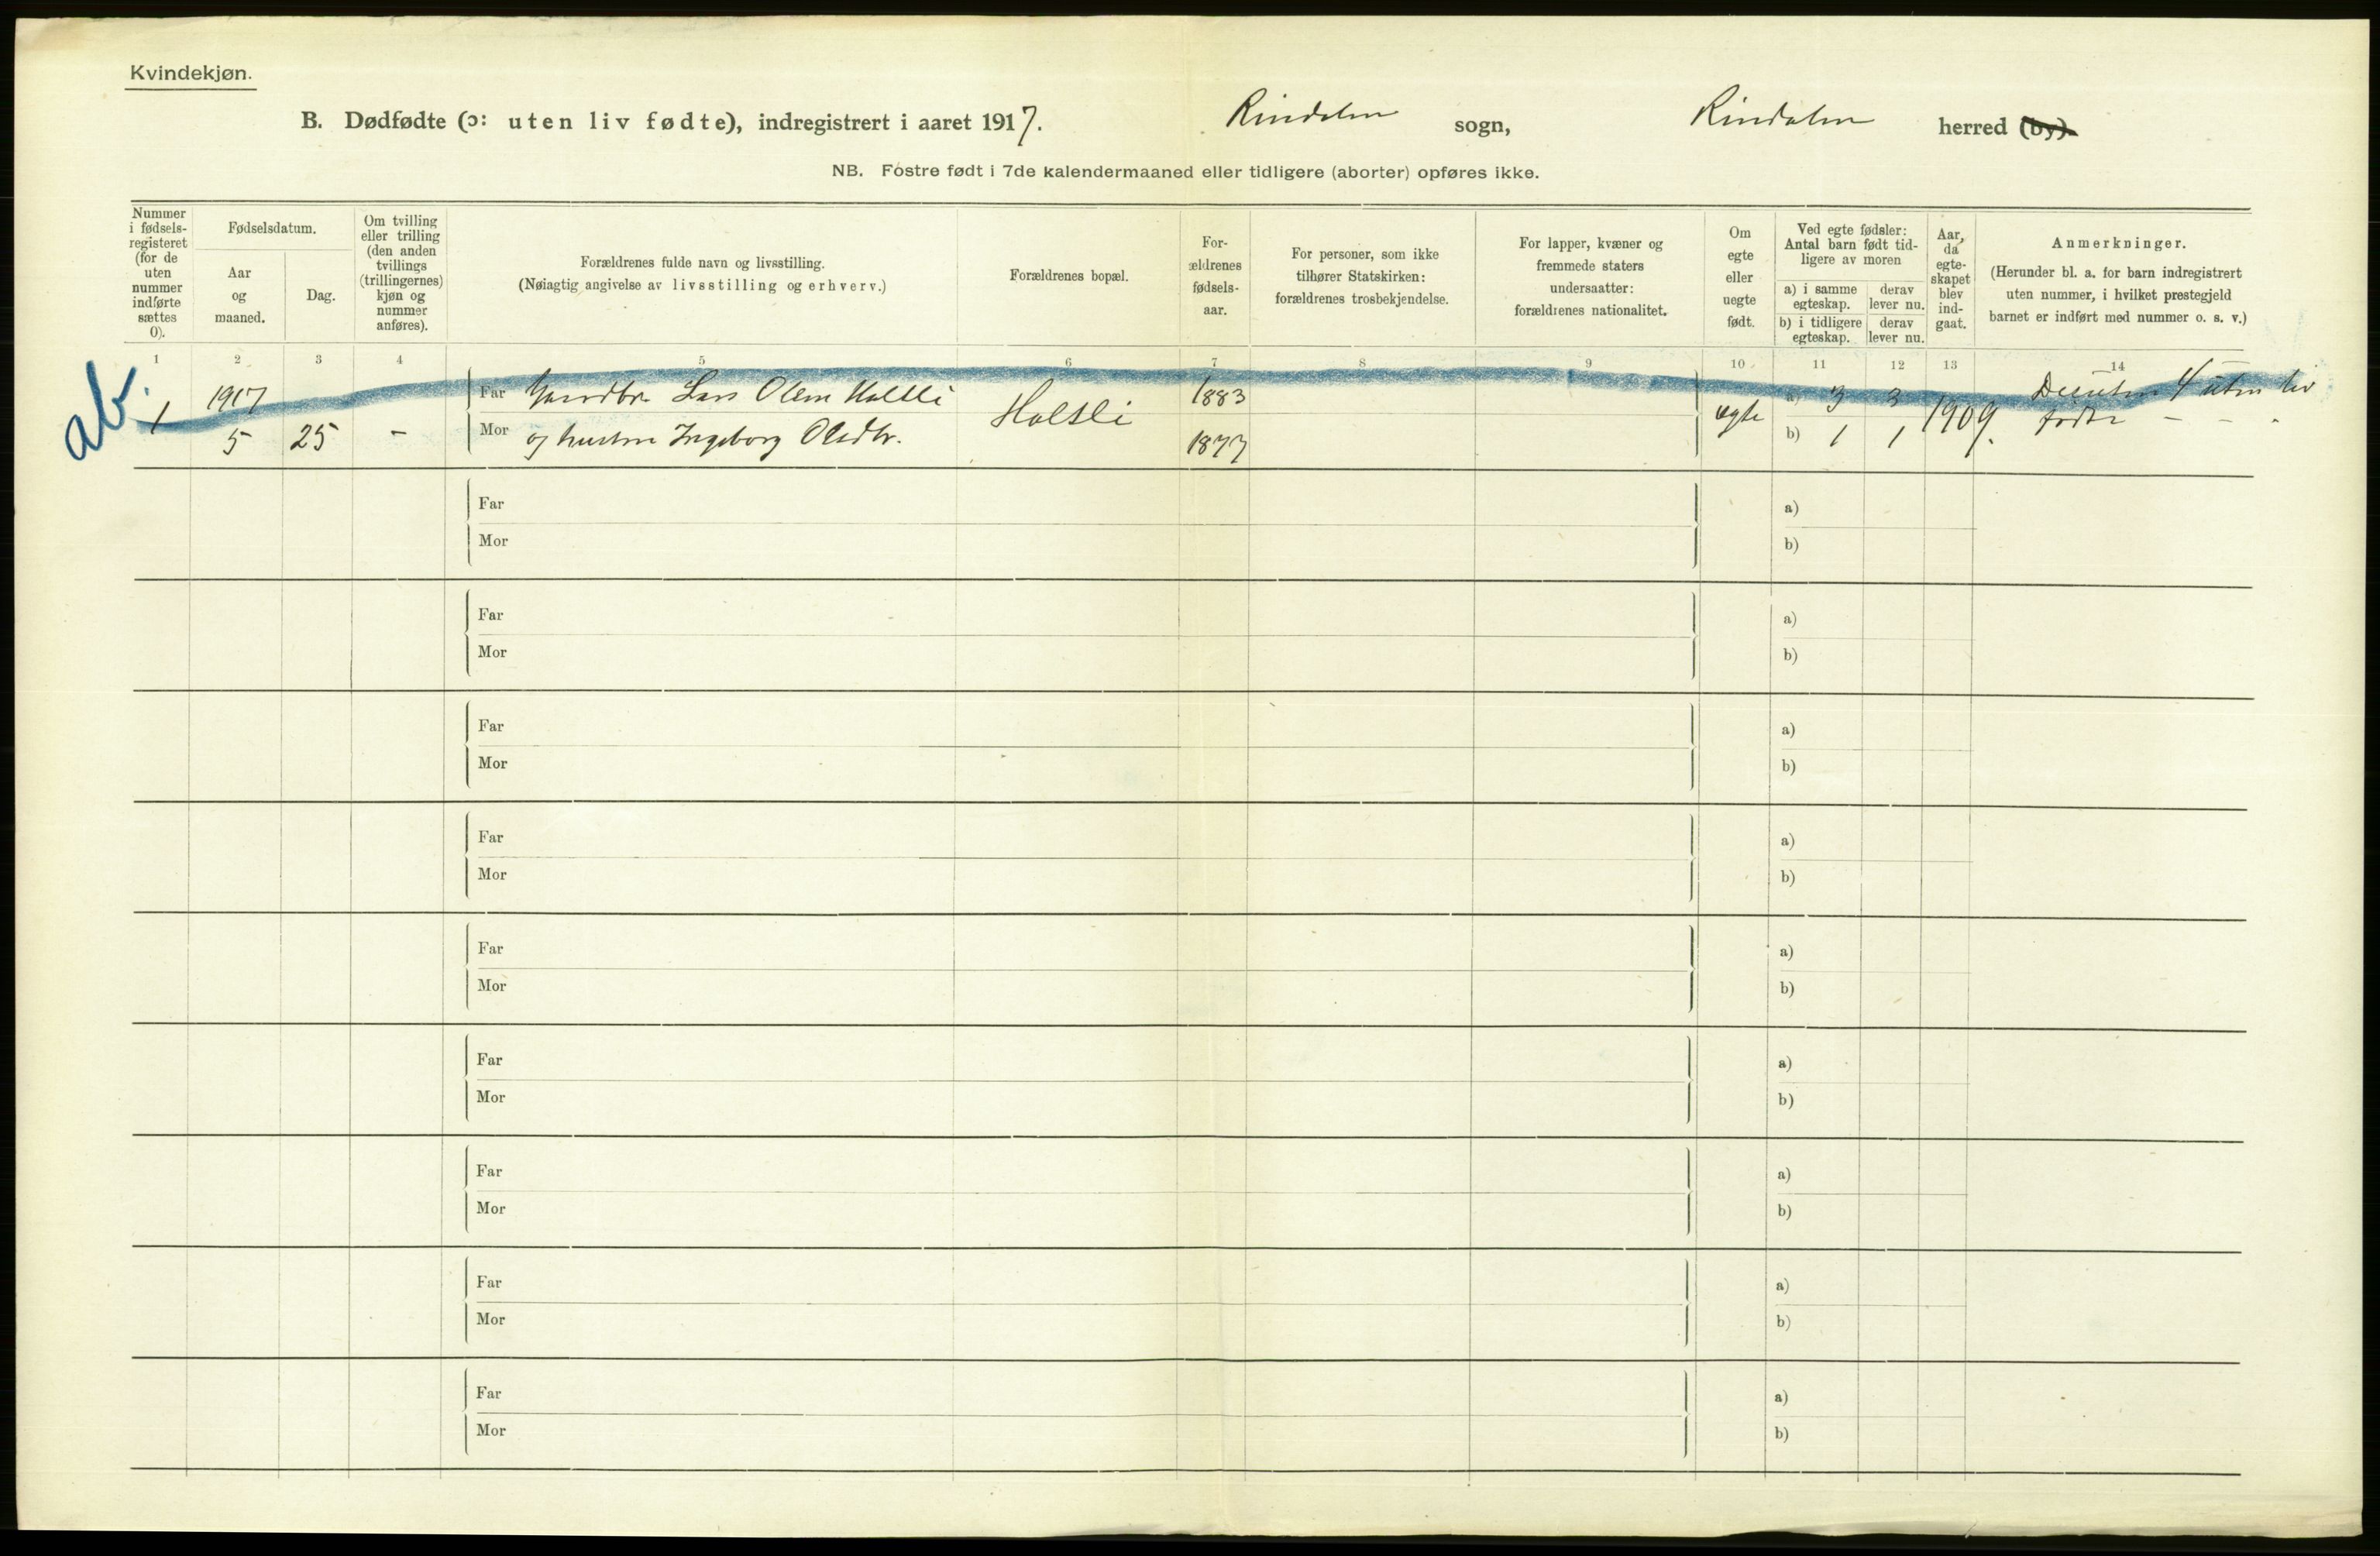 Kvindekjøn.
B. Dødfødte (ɔ: uten liv fødte), indregistrert i aaret 1917. Rindalen sogn, Rindalen herred (by).
NB. Fostre født i 7de kalendermaaned eller tidligere (aborter) opføres ikke.
Nummer
i fødsels-
registeret
(for de
uten
nummer
indførte
sættes
0).
Fødselsdatum.
Aar
og
maaned.
Dag.
Om tvilling
eller trilling
(den anden
tvillings
(trillingernes)
kjøn og
nummer
anføres).
Forældrenes fulde navn og livsstilling.
(Nøiagtig angivelse av livsstilling og erhverv.)
Forældrenes bopæl.
For-
ældrenes
fødsels-
aar.
For personer, som ikke
tilhører Statskirken:
forældrenes trosbekjendelse.
For lapper, kvæner og
fremmede staters
undersaatter:
forældrenes nationalitet.
Om
egte
eller
uegte
født.
Ved egte fødsler:
Antal barn født tid-
ligere av moren
a) i samme
egteskap.
derav
lever nu.
b) i tidligere
egteskap.
derav
lever nu.
Aar,
da
egte-
skapet
blev
ind-
gaat.
Anmerkninger.
(Herunder bl. a. for barn indregistrert
uten nummer, i hvilket prestegjeld
barnet er indført med nummer o. s. v.)
1 2 3 4 5 6 7 8 9 10 11 12 13 14
ab.
1 1917 Far Gaardbr. Lars Olsen Holtli Holtli 1883 egte a) 3 3 1909. Desuten 4 uten liv
5 25 - Mor og hustru Ingeborg Olsdtr. 1877 b) 1 1 fødte - - .
Far a)
Mor b)
Far a)
Mor b)
Far a)
Mor b)
Far a)
Mor b)
Far a)
Mor b)
Far a)
Mor b)
Far a)
Mor b)
Far a)
Mor b)
Far a)
Mor b)